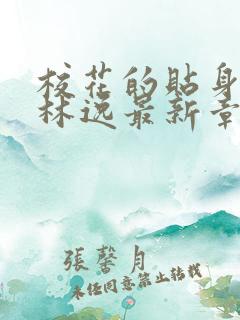 校花的贴身
林逸最新章
張馨月
未经同意禁止转载